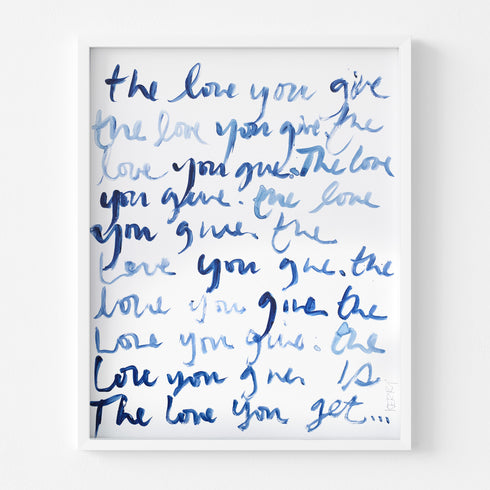 the love you give
the love you give. the
love you give. The love
you give. the love
you give. the
Love you give. the
love you give. the
Love you give. the
love you give. Is
The love you get...